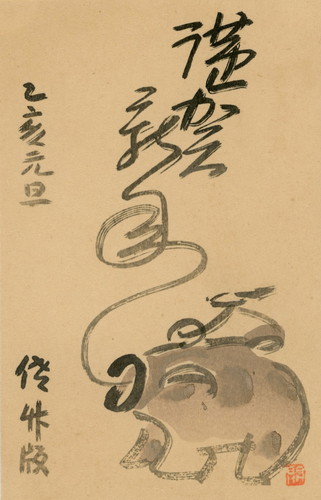 謹賀
新年
乙亥元旦
版